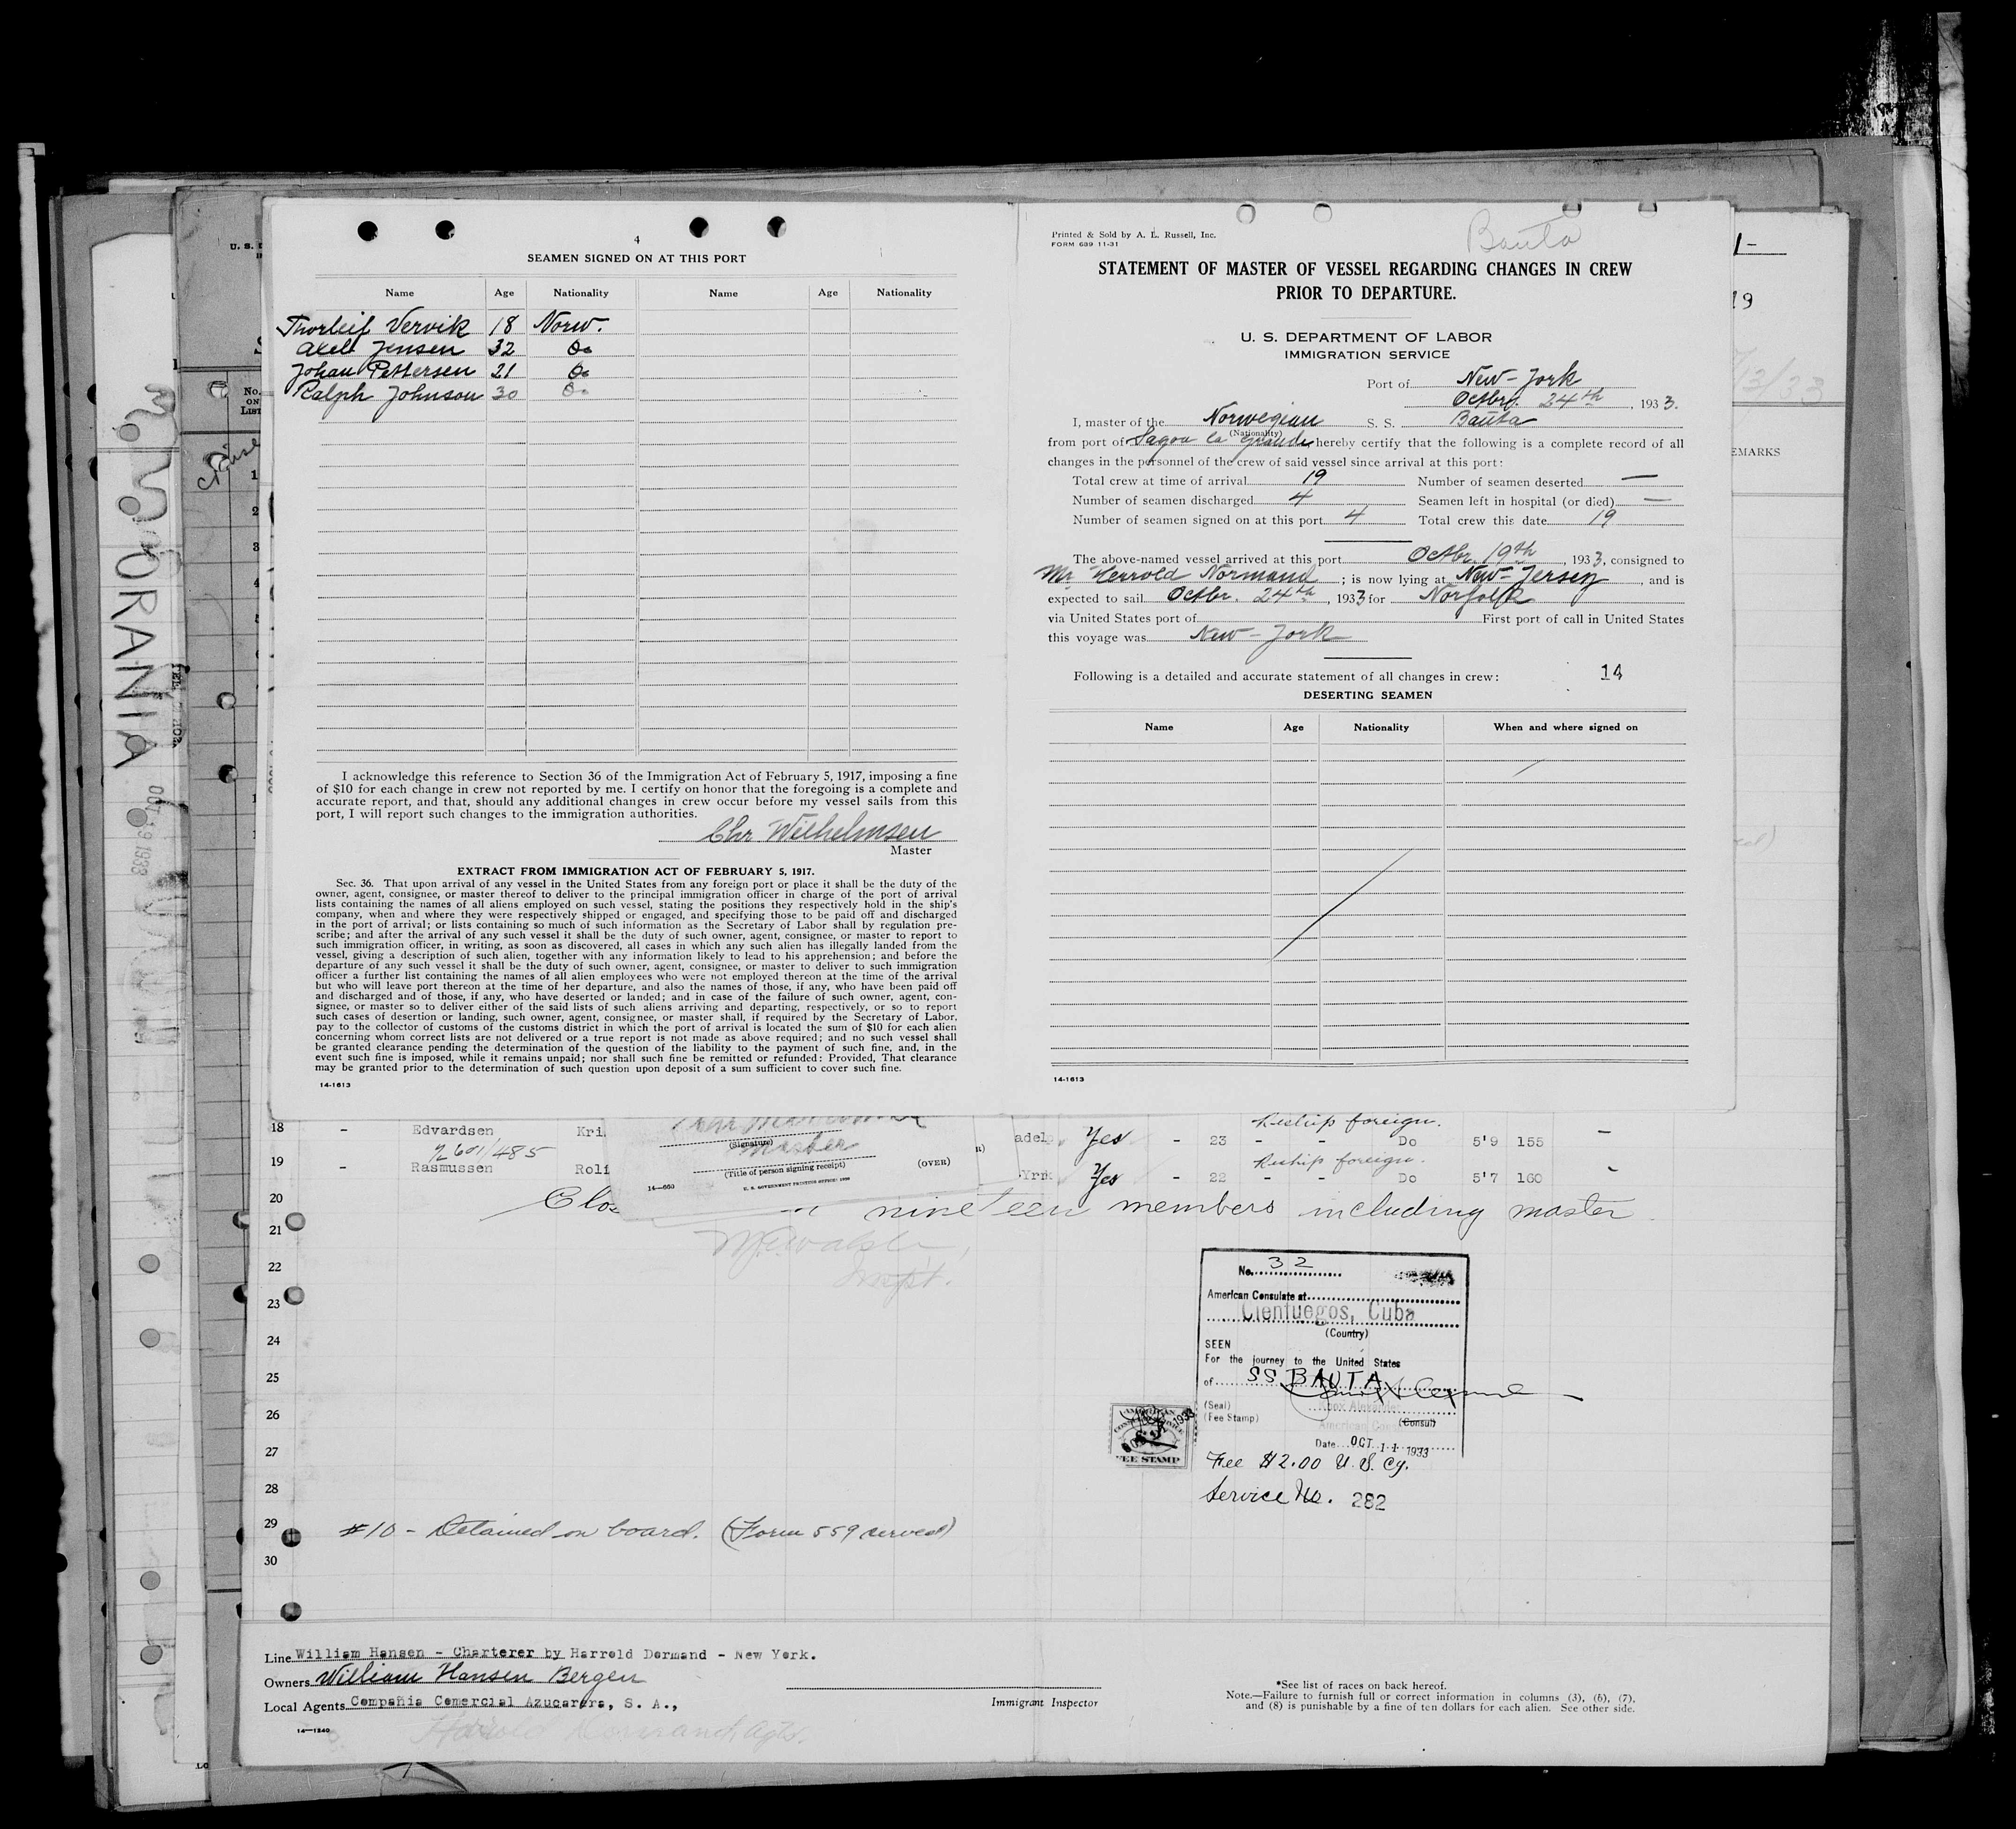 4
SEAMEN SIGNED ON AT THIS PORT
Name Age Nationality Name Age Nationality
Thorleif Vervik 18 Norw.
Axel Jensen 32 Do
Johan Pettersen 21 Do
Ralph Johnson 30 Do
I acknowledge this reference to Section 36 of the Immigration Act of February 5, 1917, imposing a fine
of $10 for each change in crew not reported by me. I certify on honor that the foregoing is a complete and
accurate report, and that, should any additional changes in crew occur before my vessel sails from this
port, I will report such changes to the immigration authorities.
Chr. Wilhelmsen
Master
EXTRACT FROM IMMIGRATION ACT OF FEBRUARY 5, 1917.
Sec. 36. That upon arrival of any vessel in the United States from any foreign port or place it shall be the duty of the
owner, agent, consignee, or master thereof to deliver to the principal immigration officer in charge of the port of arrival
lists containing the names of all aliens employed on such vessel, stating the positions they respectively hold in the ship's
company, when and where they were respectively shipped or engaged, and specifying those to be paid off and discharged
in the port of arrival; or lists containing so much of such information as the Secretary of Labor shall by regulation pre-
scribe; and after the arrival of any such vessel it shall be the duty of such owner, agent, consignee, or master to report to
such immigration officer, in writing, as soon as discovered, all cases in which any such alien has illegally landed from the
vessel, giving a description of such alien, together with any information likely to lead to his apprehension; and before the
departure of any such vessel it shall be the duty of such owner, agent, consignee, or master to deliver to such immigration
officer a further list containing the names of all alien employees who were not employed thereon at the time of the arrival
but who will leave port thereon at the time of her departure, and also the names of those, if any, who have been paid off
and discharged and of those, if any, who have deserted or landed; and in case of the failure of such owner, agent, con-
signee, or master so to deliver either of the said lists of such aliens arriving and departing, respectively, or so to report
such cases of desertion or landing, such owner, agent, consignee, or master shall, if required by the Secretary of Labor,
pay to the collector of customs of the customs district in which the port of arrival is located the sum of $10 for each alien
concerning whom correct lists are not delivered or a true report is not made as above required; and no such vessel shall
be granted clearance pending the determination of the question of the liability to the payment of such fine, and, in the
event such fine is imposed, while it remains unpaid; nor shall such fine be remitted or refunded: Provided, That clearance
may be granted prior to the determination of such question upon deposit of a sum sufficient to cover such fine.
14-1613
Printed & Sold by A. L. Russell, Inc.
FORM 689 11-31
Bauta
STATEMENT OF MASTER OF VESSEL REGARDING CHANGES IN CREW
PRIOR TO DEPARTURE.
U. S. DEPARTMENT OF LABOR
IMMIGRATION SERVICE
Port of New-York
Octbr. 24th, 1933.
I, master of the Norwegian S. S. Bauta
(Nationality)
from port of Sagou la Grande hereby certify that the following is a complete record of all
changes in the personnel of the crew of said vessel since arrival at this port:
Total crew at time of arrival 19 Number of seamen deserted —
Number of seamen discharged 4 Seamen left in hospital (or died) —
Number of seamen signed on at this port 4 Total crew this date 19
The above-named vessel arrived at this port Octbr. 19th, 1933, consigned to
Mr Herrold Normand; is now lying at New-Jersey, and is
expected to sail Octbr. 24th, 1933 for Norfolk
via United States port of First port of call in United States
this voyage was New-York
Following is a detailed and accurate statement of all changes in crew: 14
DESERTING SEAMEN
Name Age Nationality When and where signed on
14-1613
ORANIA
OCT 19 1933
No. ON LIST
EMARKS
19
18 - Edvardsen Kri adel Yes - 23 - - Do 5'9 155 -
Reship foreign.
2601/485
19 - Rasmussen Roli .Yrk Yes - 22 - - Do 5'7 160
Reship foreign.
(Signature)
Master
(Title of person signing receipt)
(OVER)
14—660 U. S. GOVERNMENT PRINTING OFFICE
20 Clos nineteen members including master
21
22
23
24
25
26
27
28
29 #10 - Detained on board. (Form 559 served)
30
No. 32
American Consulate at
Cienfuegos, Cuba
(Country)
SEEN
For the journey to the United States
of SS BAUTA
(Seal) Knox Alexander
(Fee Stamp) American Consul (Consul)
Date OCT 11 1933
FEE STAMP
Fee $2.00 U.S. Cy.
Service No. 282
Line William Hansen - Charterer by Harrold Dormand - New York.
Owners William Hansen Bergen
Local Agents Compañia Comercial Azucarera, S. A.,
Immigrant Inspector
14—1240
*See list of races on back hereof.
Note.—Failure to furnish full or correct information in columns (3), (6), (7),
and (8) is punishable by a fine of ten dollars for each alien. See other side.